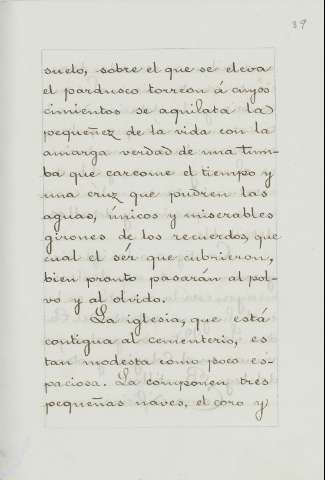 39
suelo, sobre el que se eleva
el pardusco torreón á cuyos
cimientos se aquilata la
pequeñez de la vida con la
amarga verdad de una tum-
ba que carcome el tiempo y
una cruz que pudren las
aguas, únicos y miserables
girones de los recuerdos, que
cual el sér que cubrieron,
bien pronto pasarán al pol-
vo y al olvido.
La iglesia, que está
contigua al cementerio, es
tan modesta como poco es-
paciosa. La componen tres
pequeñas naves, el coro y